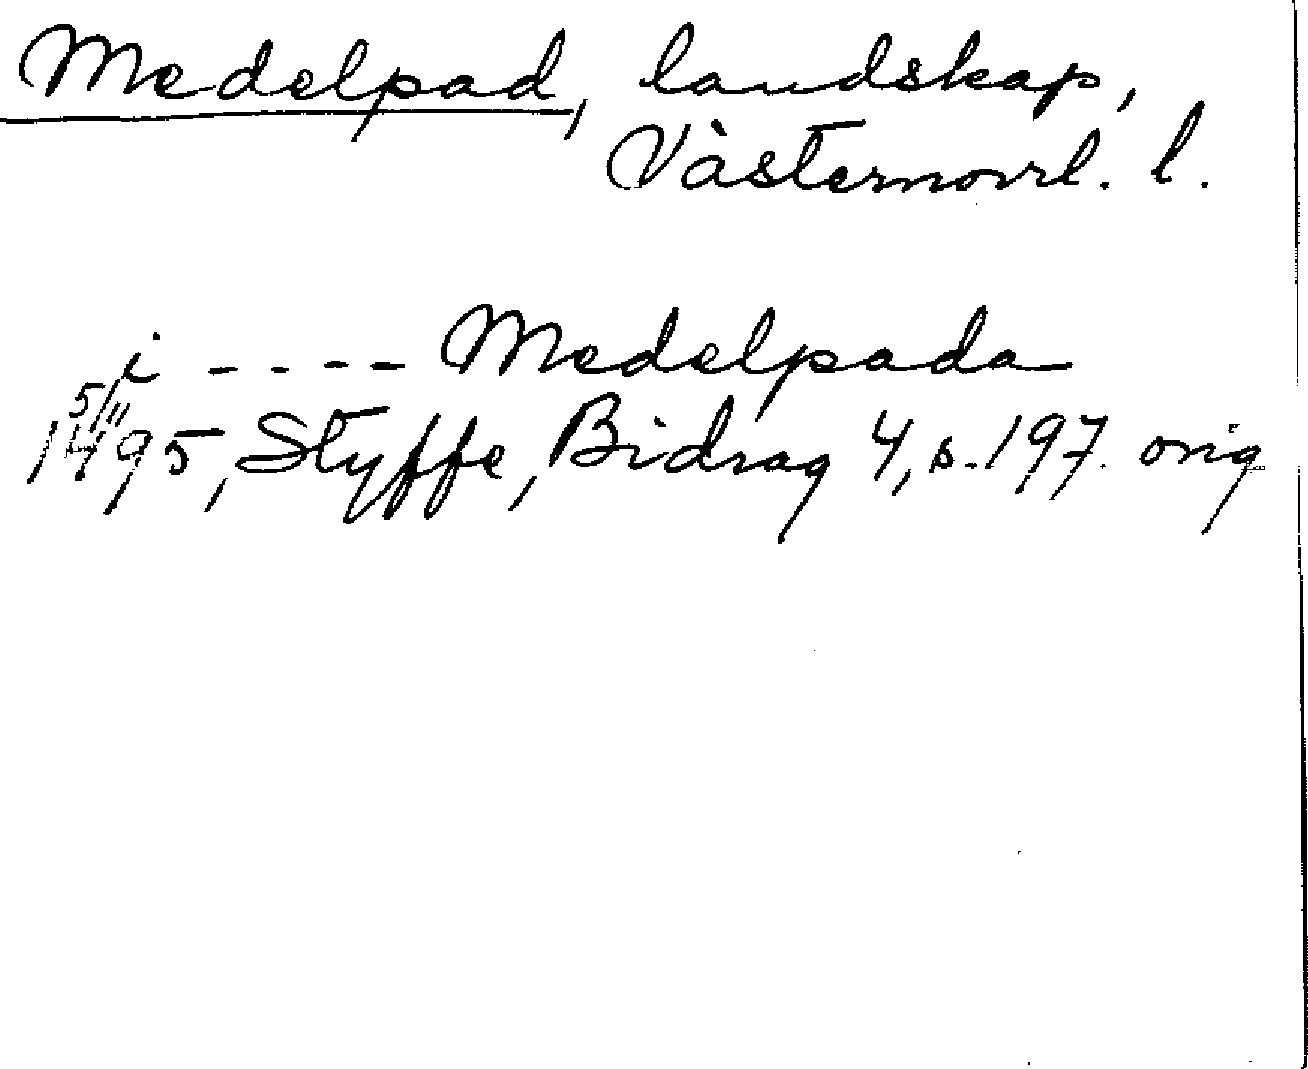 Medelpad, landskap,
Västernorrl. l.
i ---- Medelpada
5/11
1495, Styffe, Bidrag 4, s. 197. orig